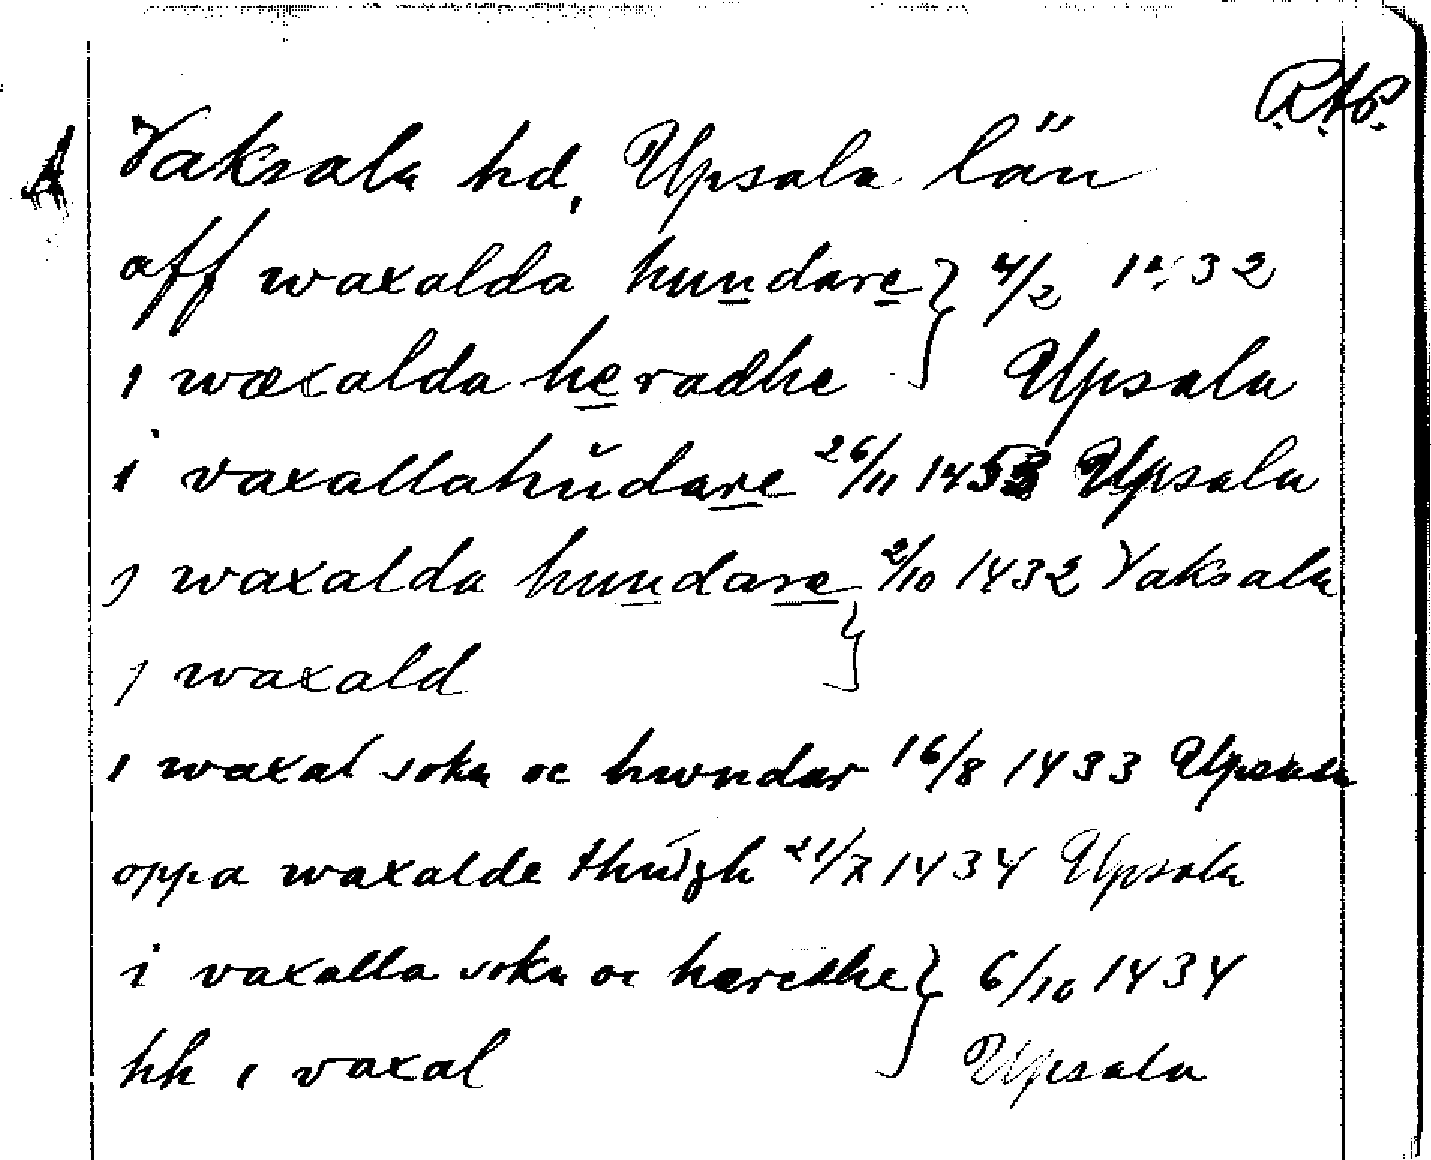 R.A.P.
A Vaksala hd, Upsala län
aff waxalda hundare } 4/2 1432
i wæxalda heradhe } Upsala
i vaxallahũdare 26/11 1453 Upsala
j waxalda hundare 2/10 1432 Vaksala
j waxald }
i waxal sokn oc hwndær 16/8 1433 Upsala
oppa waxalde 21/7 1434 Upsala
i vaxalla sokn oc hæredhe } 6/10 1434
hh i vaxal } Upsala